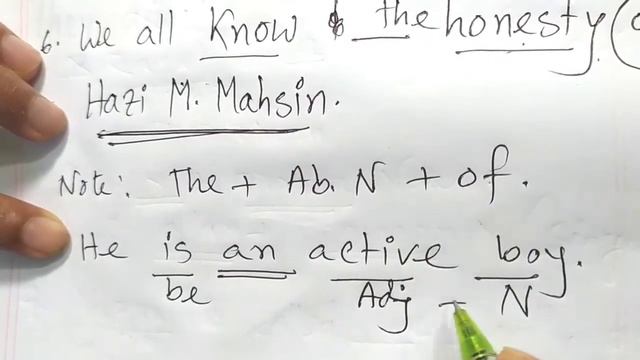 6. We all know the honesty (
Hazi M. Mahsin.
Note: The + Ab. N + of.
He is an active boy.
be Adj - N